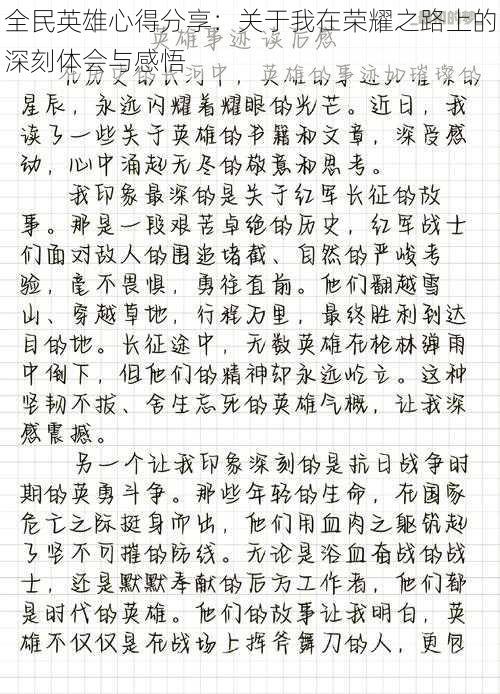 全民英雄心得分享：关于我在荣耀之路上的
深刻体会与感悟
英雄事迹读后感
在历史的长河中，英雄的事迹如璀璨的
星辰，永远闪耀着耀眼的光芒。近日，我
读了一些关于英雄的书籍和文章，深受感
动，心中涌起无尽的敬意和思考。
我印象最深的是关于红军长征的故
事。那是一段艰苦卓绝的历史，红军战士
们面对敌人的围追堵截、自然的严峻考
验，毫不畏惧，勇往直前。他们翻越雪
山、穿越草地，行程万里，最终胜利到达
目的地。长征途中，无数英雄在枪林弹雨
中倒下，但他们的精神却永远屹立。这种
坚韧不拔、舍生忘死的英雄气概，让我深
感震撼。
另一个让我印象深刻的是抗日战争时
期的英勇斗争。那些年轻的生命，在国家
危亡之际挺身而出，他们用血肉之躯筑起
了坚不可摧的防线。无论是浴血奋战的战
士，还是默默奉献的后方工作者，他们都
是时代的英雄。他们的故事让我明白，英
雄不仅仅是在战场上挥斧舞刀的人，更包